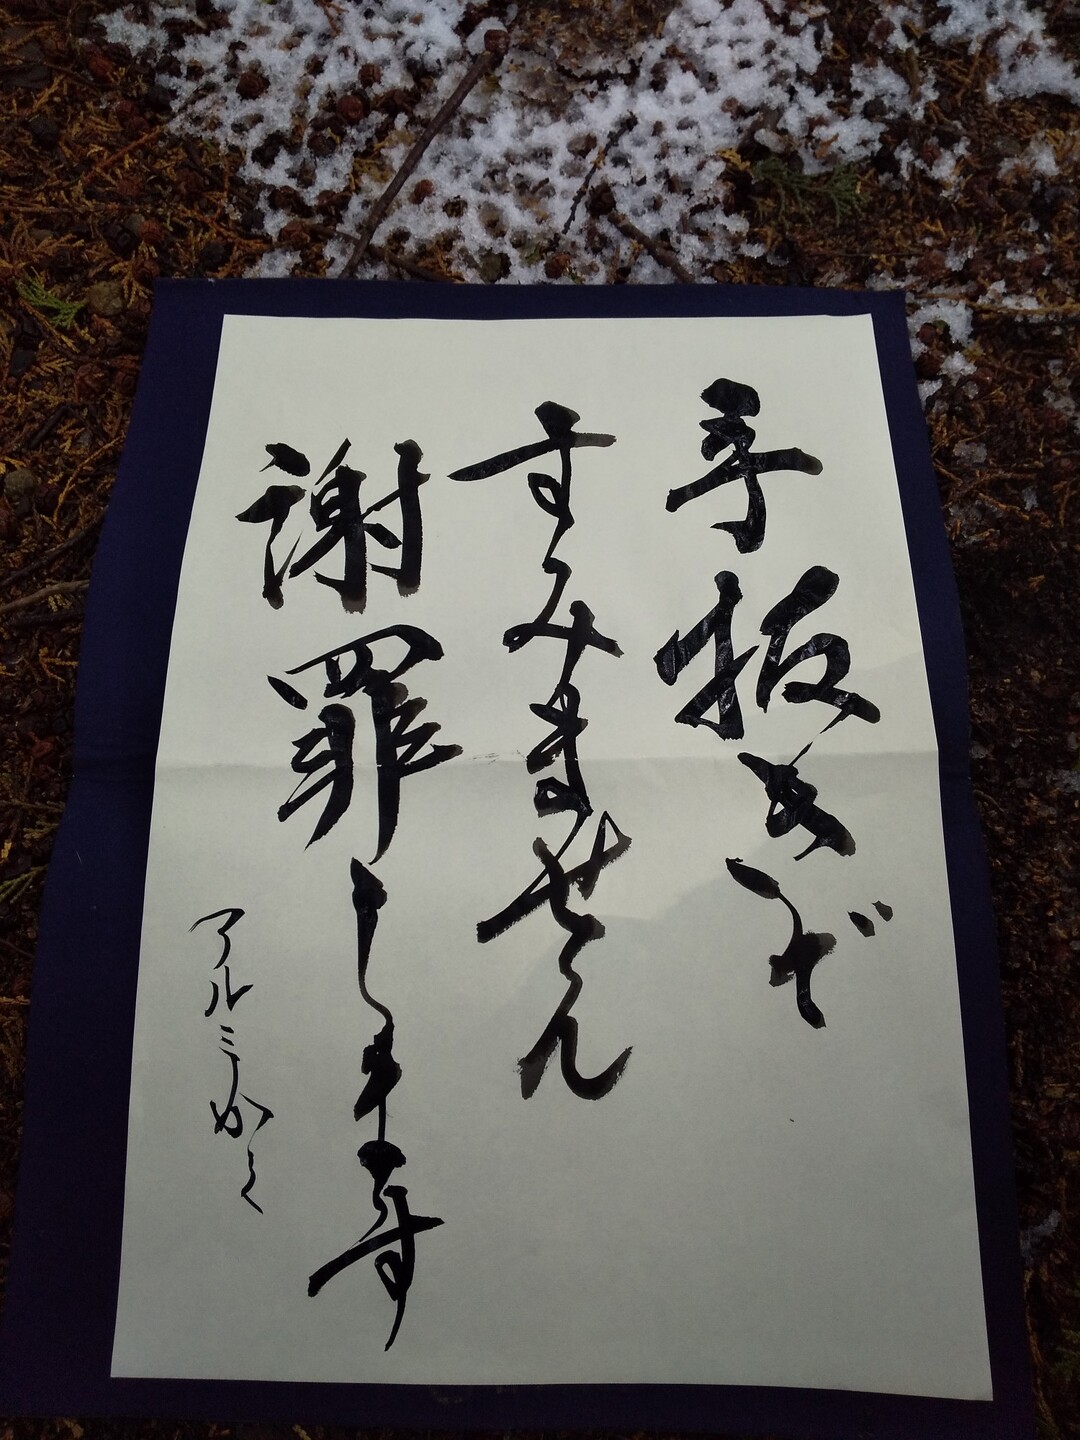 手抜きで
すみません
謝罪します
アルミかん